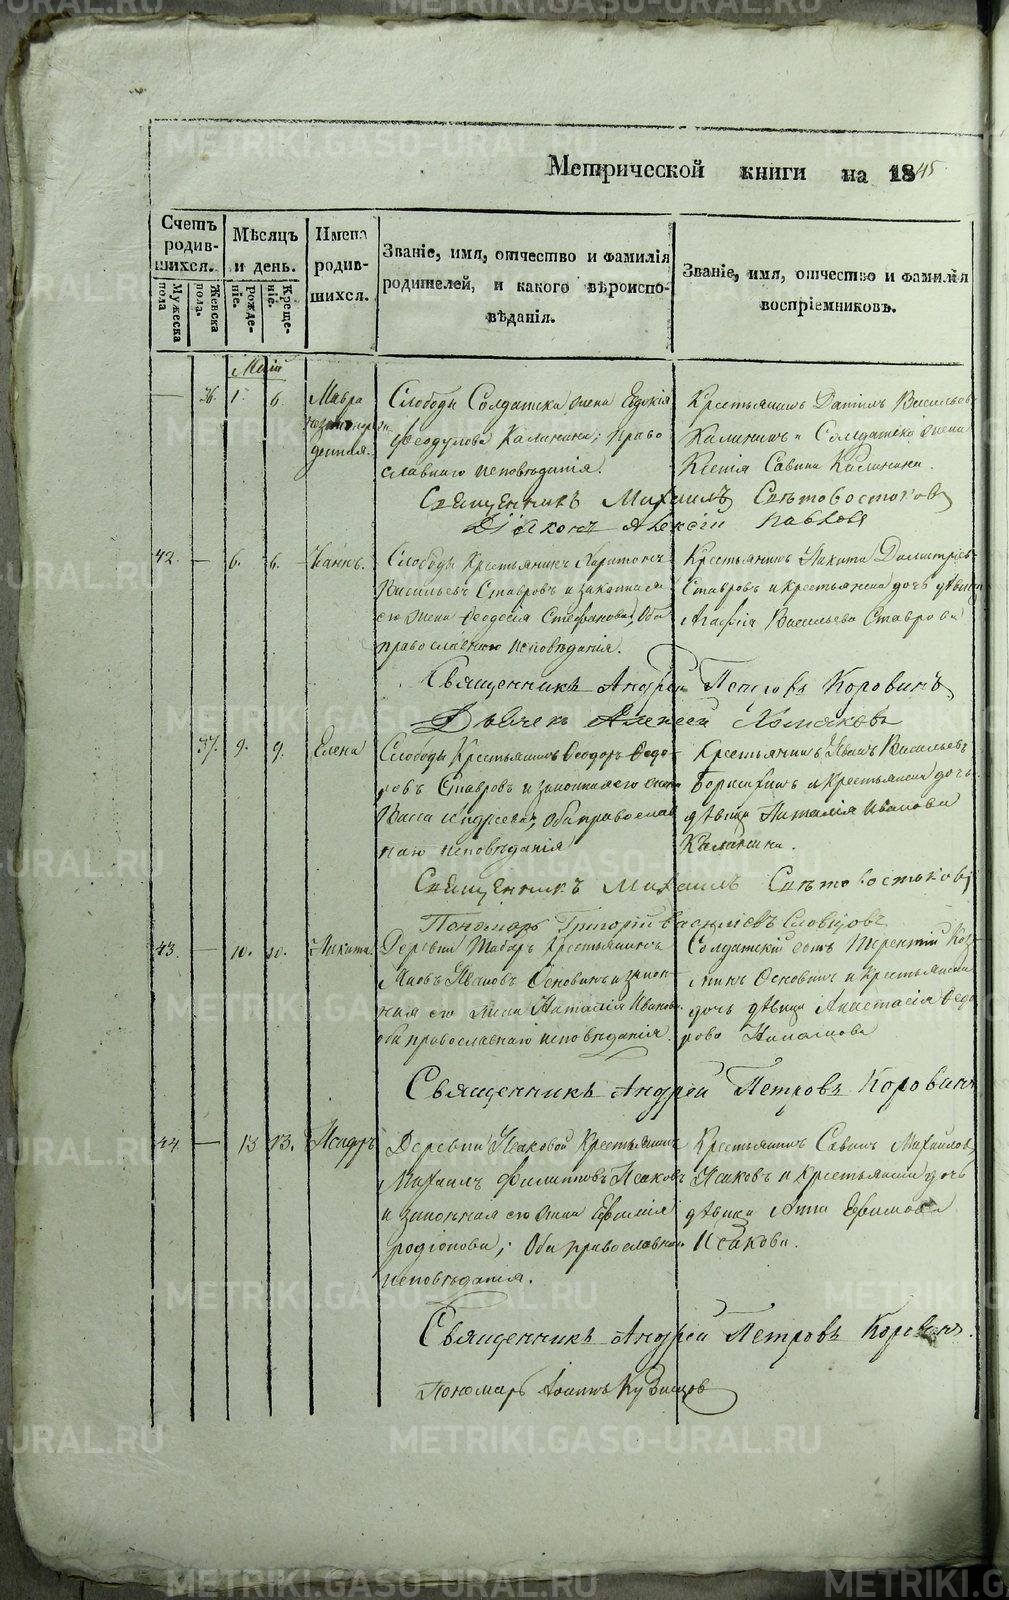 Метрической книги на 1845
Счетъ родив-шихся.
Мужеска пола
Женска пола.
Мѣсяцъ и день.
Рожде-ніе.
Креще-ніе.
Имена родив-шихся.
Званіе, имя, отчество и фамилія
родителей, и какого вѣроиспо-
вѣданія.
Званіе, имя, отчество и фамилія
воспріемниковъ.
Май
— 36. 1. 6. Мавра
незаконорож
денная.
Слободы Солдатска жена Евдокія
Феодулова Калинина; право
славнаго исповѣданія.
Крестьянинъ Васильевъ
Калининъ и Солдатска жена
Ксенія Савина Калинина.
Священникъ Михаилъ Свѣтовостоковъ
Діаконъ Алексій Павловъ
42. — 6. 6.
Слободы Крестьянинъ Харитонъ
Васильевъ Ставровъ и законная
его жена Ѳеодосія Стефанова, Оба
православнаго исповѣданія.
Крестьянинъ Никита Димитріевъ
Ставровъ и крестьянска дочь дѣвица
Агафія Васильева Ставрова
Священникъ Андрей Петровъ Коровинъ
Дьячекъ Алексей Хомяковъ
37. 9. 9. Елена
Слободы Крестьянинъ Ѳеодоръ Ѳедо-
ровъ Ставровъ и законная его жена
Васса Андреева, Оба православ
наго исповѣданія
Крестьянинъ Иванъ Васильевъ
и Крестьянска дочь
дѣвица Наталія Иванова
Калинина.
Священникъ Михаилъ Свѣтовостоковъ
Пономарь Григорій Васильевъ Словцовъ
43. — 10. 10. Никита.
Деревни Табаръ Крестьянинъ
Яковъ Ивановъ Основинъ и закон-
ная его жена Наталія Иванова
оба православнаго исповѣданія.
Солдатскій сынъ Терентій Коз
минъ Основинъ и Крестьянска
дочь дѣвица Анастасія Ѳедо
рова
Священникъ Андрей Петровъ Коровинъ
44. — 13 13. Исидръ
Деревни Исаковой Крестьянинъ
Михаилъ Филиповъ Исаковъ
и законная его жена Евфимія
родіонова; Оба православнаго
исповѣданія.
Крестьянинъ Савинъ Михайловъ
Исаковъ и Крестьянска дочь
дѣвица Анна Ефимова
Исакова.
Священникъ Андрей Петровъ Коровинъ.
Пономарь Іоаннъ Кудрицовъ
METRIKI.GASO-URAL.RU